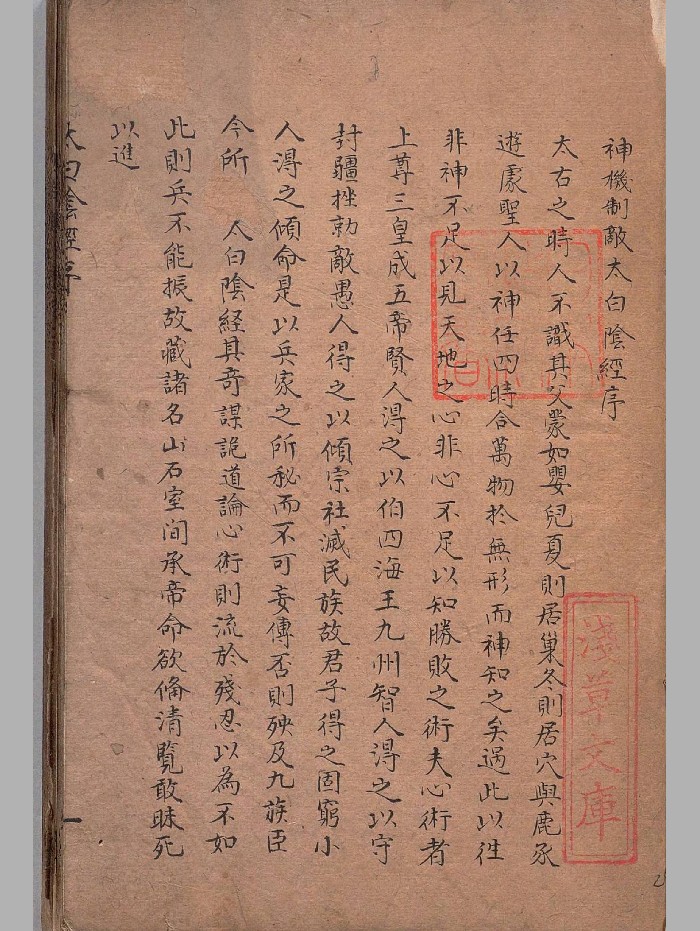 神機制敵太白陰經序
太古之時人不識其父蒙如嬰兒夏則居巢冬則居穴與鹿豕
遊處聖人以神任四時合萬物於無形而神知之矣過此以徃
非神不足以見天地之心非心不足以知勝敗之術夫心術者
上尊三皇成五帝賢人淂之以伯四海王九州智人淂之以守
封疆挫勍敵愚人得之以傾宗社滅民族故君子得之固窮小
人淂之傾命是以兵家之所秘而不可妄傳否則殃及九族臣
今所　太白陰経其竒謀詭道論心術則流於殘忍以為不如
此則兵不能振故藏諸名山石室间承帝命欲俻清覽敢昧死
以進
太白陰經序
一
淺草文庫